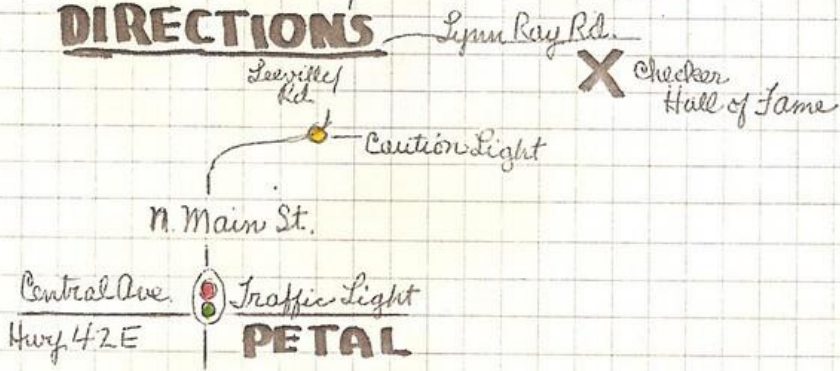 DIRECTIONS
Lynn Ray Rd.
Leeville Rd.
Checker
Hall of Fame
Caution Light
N. Main St.
Central Ave.
Traffic Light
Hwy 42E
PETAL